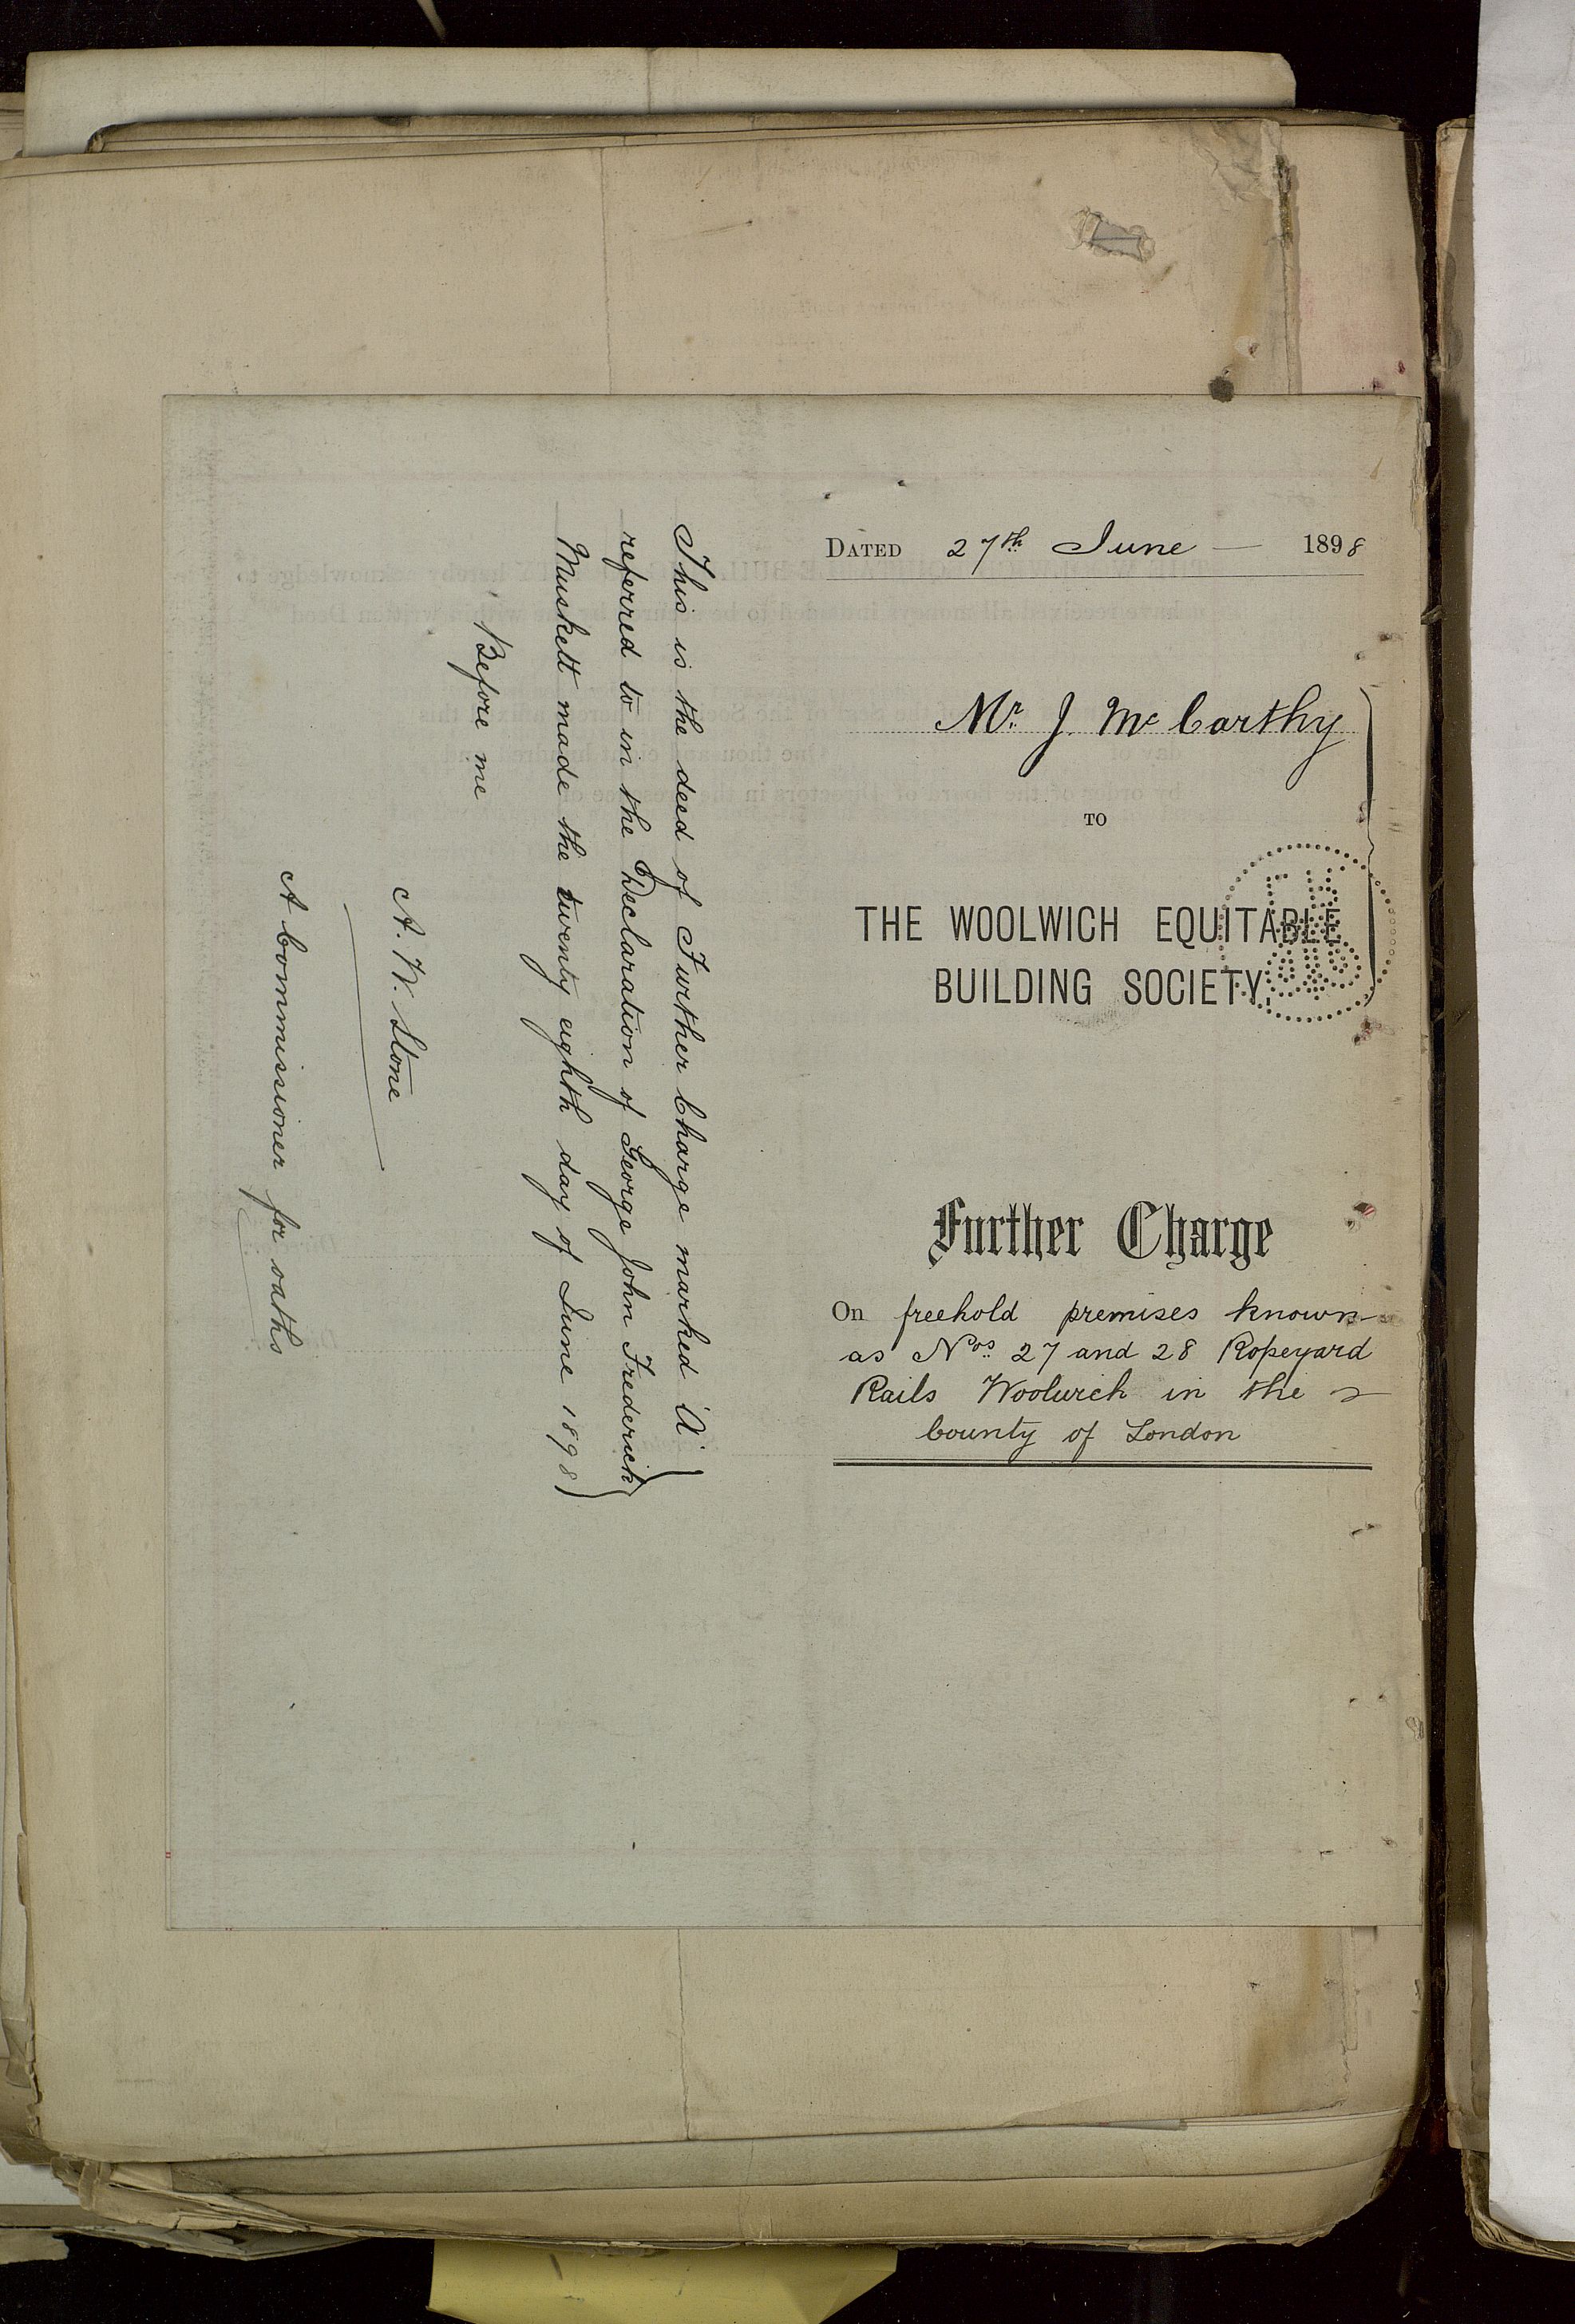 DATED 27th June — 1898
Mr. J. McCarthy
TO
THE WOOLWICH EQUITABLE
BUILDING SOCIETY.
Further Charge
On freehold premises known
as Nos. 27 and 28 Ropeyard
Rails Woolwich in the
County of London
This is the deed of Further Charge marked 'A'
referred to in the Declaration of George John Frederick
Muskett made the twenty eighth day of June 1898
Before me
A. W. Stone
A Commissioner for oaths